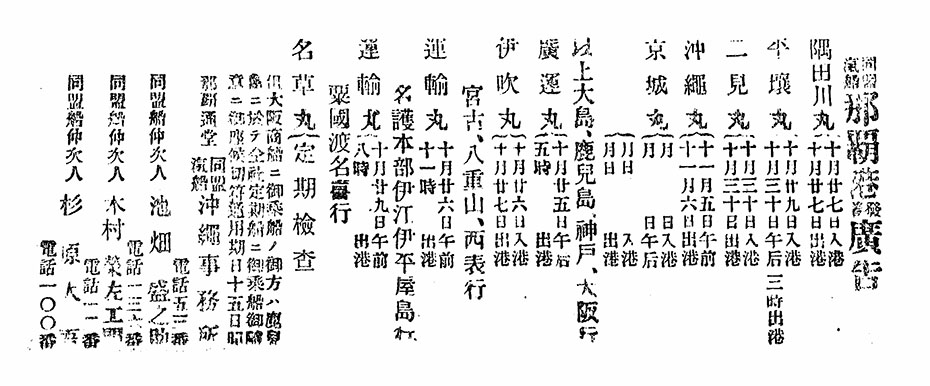 同盟汽船 那覇港發着廣告
隅田川丸 十月廿七日入港
十月廿七日出港
平壤丸 十月廿九日入港
十月三十日午后三時出港
二見丸 十月三十日入港
十月三十日出港
沖繩丸 十一月五日午前
十一月六日出港
京城丸 月 日入港
月 日午后
月日 入港
月日 出港
以上大島、鹿兒島、神戸、大阪行
廣運丸 十月廿五日午后
五時 出港
伊吹丸 十月廿六日入港
十月廿七日出港
宮古、八重山、西表行
運輸丸 十月廿六日午前
十一時 出港
名護本部伊江伊平屋島行
運輸丸 十月廿九日午前
八時 出港
粟國渡名喜行
名草丸 定期檢查
大阪商船ニ御乘船ノ御方ハ鹿兒
島ニ於テ全社定期船ニ御乘船御
意ニ御座候切符通用期日十五日間
那覇通堂 同盟汽船 沖繩事務所
電話五三番
同盟船仲次人 池畑盛之助
電話一三六番
同盟船仲次人 木村榮左工門
電話一一番
同盟船仲次人 杉原
電話一〇〇番